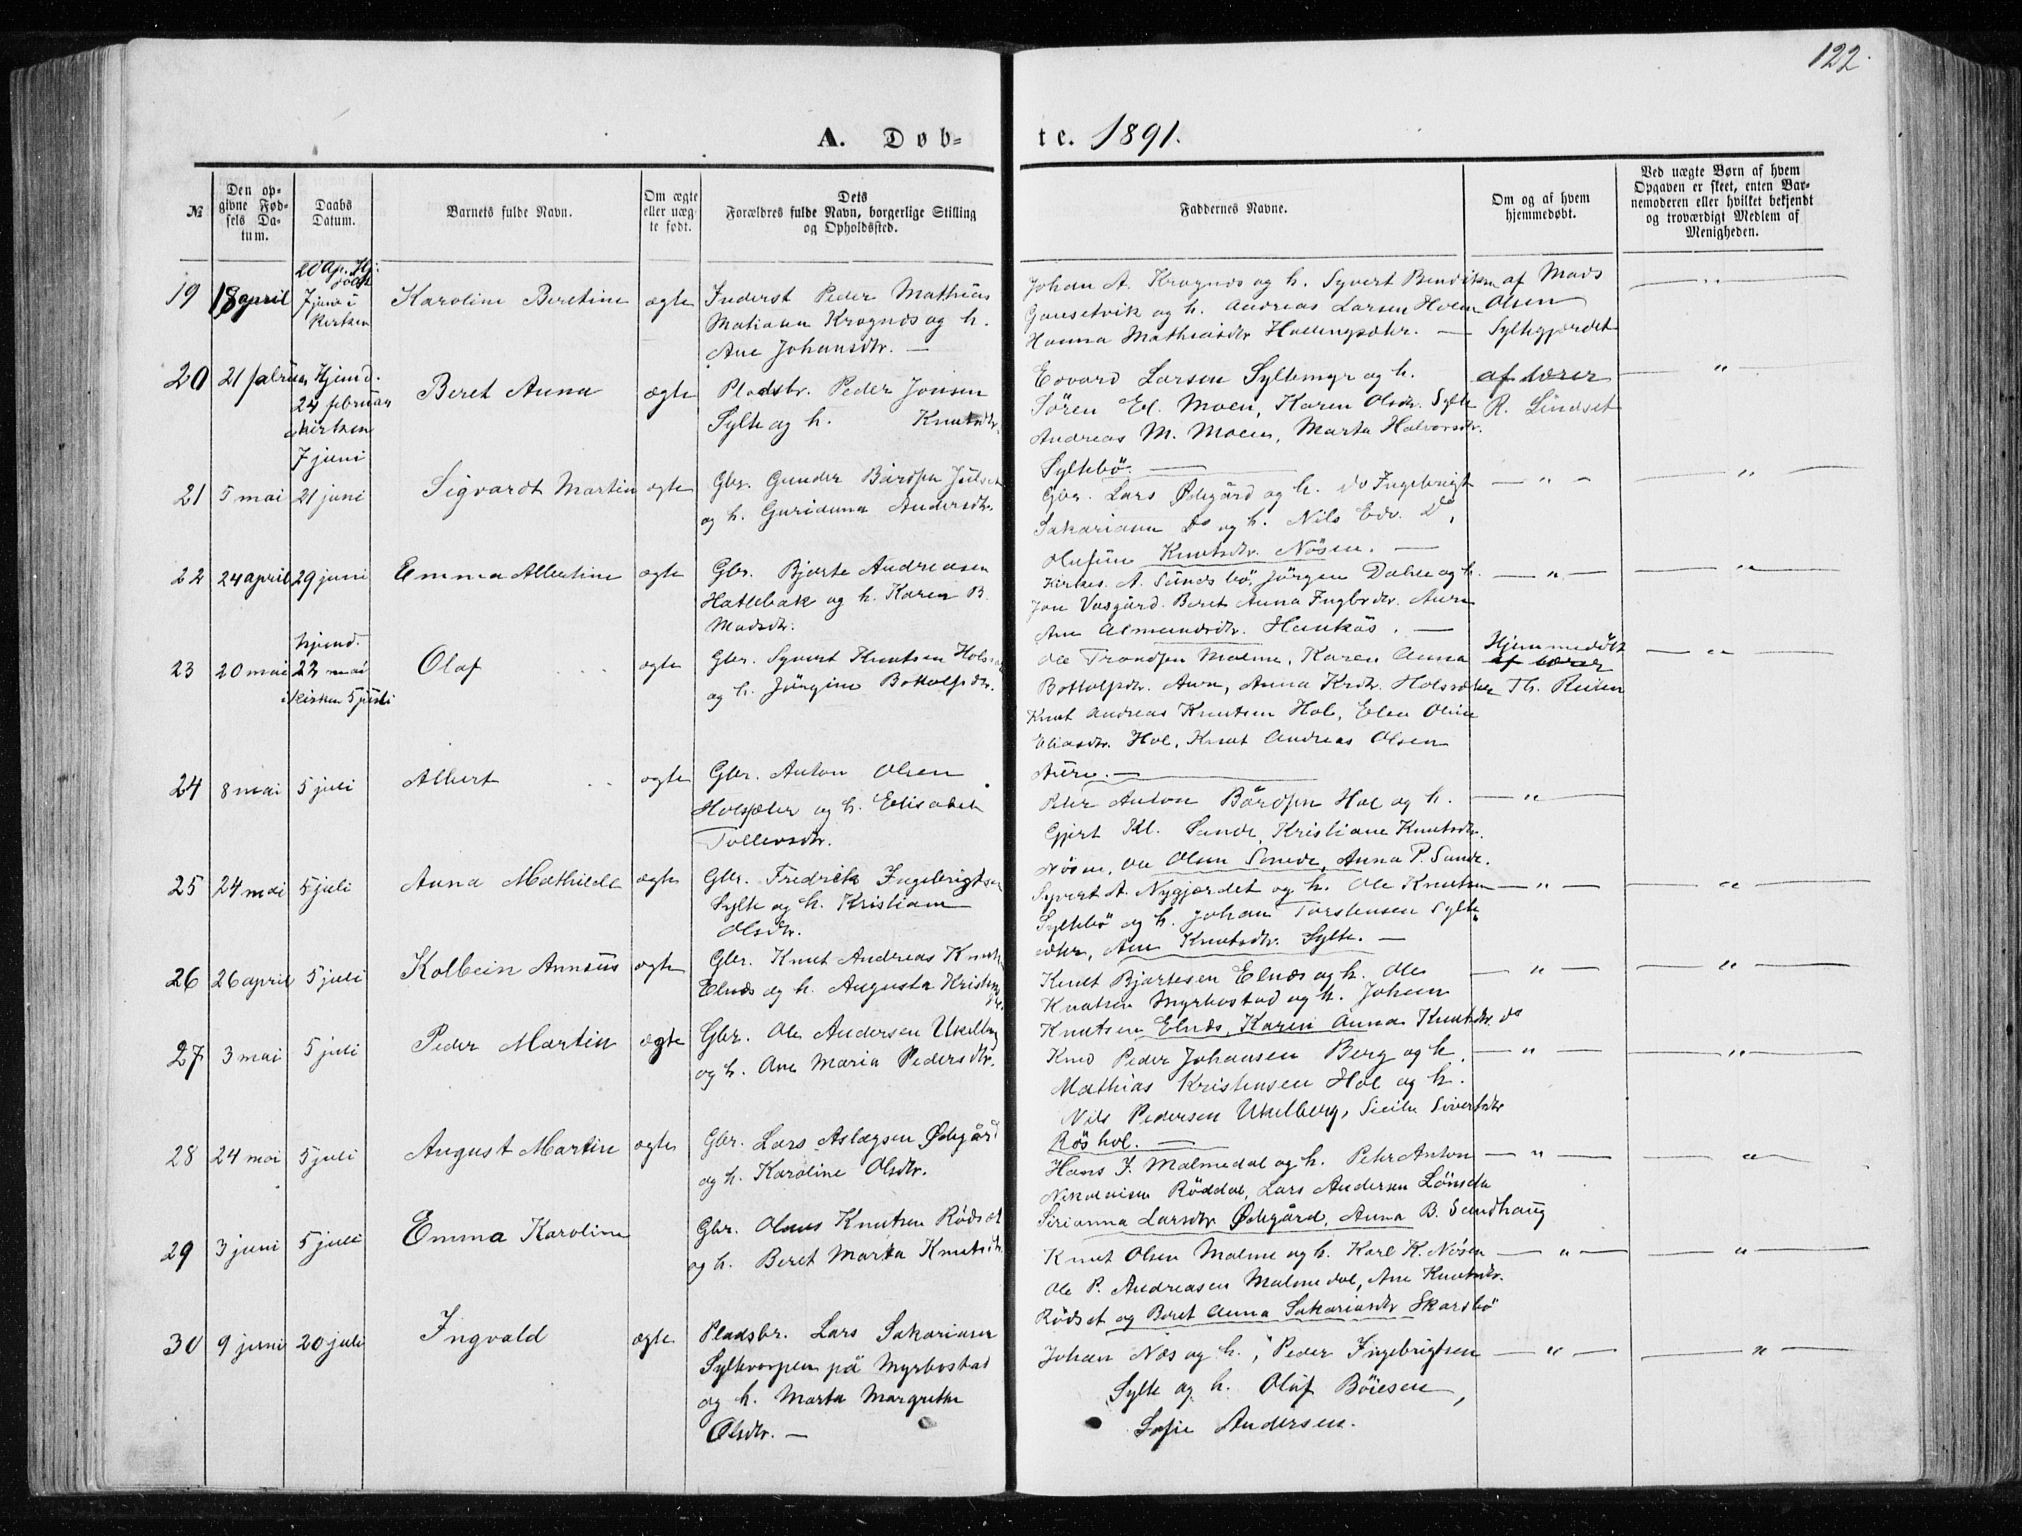 122.
A. Døb-
te. 1891.
№
Den op-
givne Fød-
sels Da-
tum.
Daabs
Datum.
Barnets fulde Navn.
Om ægte
eller uæg-
te født.
Dets
Forældres fulde Navn, borgerlige Stilling
og Opholdssted.
Faddernes Navne.
Om og af hvem
hjemmedøbt.
Ved uægte Børn af hvem
Opgaven er skeet, enten Bar-
nemoderen eller hvilket bekjendt
og troværdigt Medlem af
Menigheden.
20 Ap. Hj.
19 18 april 7 juni i Karoline Beretine ægte Inderst Peder Mathias
Kirken
Matiasen Krognæs og h.
Ane Johansdtr. —
Johan A. Krognæs og h. Syvert Bendiksen af Mads — " —
Gausetvik og h. Andreas Larsen Holen Olsen
Hanna Mathiasdtr. — Syltegjærdet
20 21 februar Hjemd. Beret Anna ægte Pladsbr. Peder Jonsen
24 februar
i Kirken
7 juni
Sylte og h. Knutsdtr.
Edvard Larsen Syltemyr og h. af lærer — " —
Sören El. Moen, Karen Olsdtr. Sylte R. Lindset
Andreas M. Moen, Marta Halvorsdtr.
Syltebö. —
21 5 mai 21 juni Sigvardt Martin ægte Gbr. Gunder Bårdsen Julset
og h. Gurianna Andersdtr.
Gbr. Lars Ødegård og h. do Ingebrigt — " — — " —
Sakariasen Do og h. Nils Edv. Do,
Olufine Knutsdtr. Nösen. —
22 24 april 29 juni Emma Albertine ægte Gbr. Bjarte Andreasen
Hattebak og h. Karen B.
Madsdtr.
Kirkes. A. Sundsbö, Jörgen Dahle og h. — " — — " —
Jon Vasgård. Beret Anna Ingbrdtr. Aure
Ane Amundsdtr. Haukås. —
23 20 mai hjemd. Olaf ægte Gbr. Syvert Knutsen Holsæter
22 mai
i Kirken 5 juli
og h. Jörgine Bottolfsdtr.
Ole Trondsen Malme, Karen Anna Hjemmedöbt — " —
af lærer
Bottolfsdtr. Aure, Anna Krdtr. Holsæter Th. Reiten
Knut Andreas Knutsen Hol, Elen Oline
Eliasdtr. Hol, Knut Andreas Olsen
Aure. —
24 8 mai 5 juli Albert ægte Gbr. Anton Olsen
Holsæter og h. Elisabet
Tollevsdtr.
Peter Anton Bårdsen Hol og h. — " —
Gjert Kl. Sande, Kristiane Knutsdtr.
Nösen, Ole Olsen Sande, Anna P. Sande.
25 24 mai 5 juli Anna Mathilde ægte Gbr. Fredrik Ingebrigtsen
Sylte og h. Kristiane
Olsdtr.
Syvert A. Nygjærdet og h. Ole Knutsen — " — — " —
Syltebö og h. Johan Torstensen Sylte
Ane Knutsdtr. Sylte. —
26 26 april 5 juli Kolbein Annæus ægte Gbr. Knut Andreas Knutsen
Elnæs og h. Augusta
Knut Bjartesen Elnæs og h. Ole — " — — " —
Knutsen Myrbostad og h. Johan
Knutsen Elnæs, Karen Anna Knutsdtr. do
27 3 mai 5 juli Peder Martin ægte Gbr. Ole Andersen Ukelberg
og h. Ane Maria Pedersdtr.
Peder Johansen Berg og h. — " — — " —
Mathias Kristensen Hol og h.
Nils Pedersen Ukelberg, Sicilie Sivertsdtr
Röshol. —
28 24 mai 5 juli August Martin ægte Gbr. Lars Aslagsen Ødegård
og h. Karoline Olsdtr.
Hans J. Malmedal og h. Petr Anton — " — — " —
Nikolaisen Röddal, Lars Andersen Lönset
Serianna Larsdtr. Ødegård, Anna B. Sandhaug
29 3 juni 5 juli Emma Karoline Gbr. Olaus Knutsen Rödset
og h. Beret Marta Knutsdtr.
Knut Olsen Malme og h. Karl K. Nösen — " — — " —
Ole P. Andreasen Malmedal, Ane Knutsdtr.
Rödset og Beret Anna Sakariasdtr Skarsbö
30 9 juni 20 juli Ingvald ægte Pladsbr. Lars Sakariasen
Syltevorpen på Myrbostad
og h. Marta Margrethe
Olsdtr. —
Johan Næs og h., Peder Ingebrigtsen — " — — " —
Sylte og h. Oluf Böiesen,
Sofie Andersen.